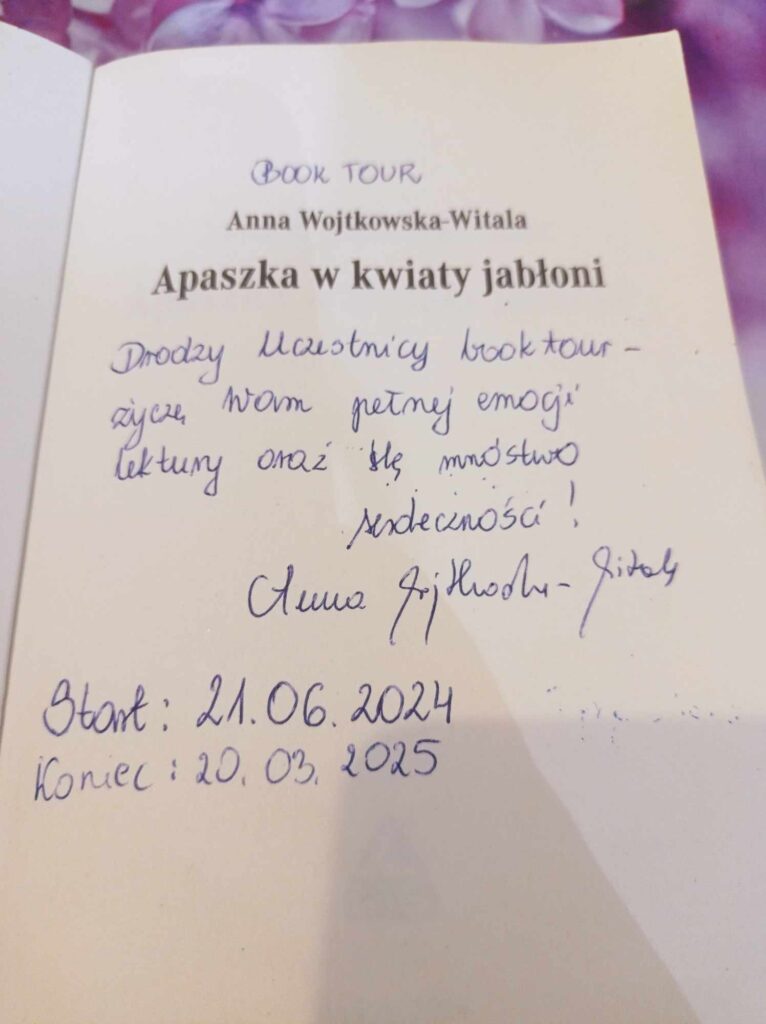 BOOK TOUR
Anna Wojtkowska-Witala
Apaszka w kwiaty jabłoni
Drodzy Uczestnicy book tour -
życzę Wam pełnej emocji
lektury oraz ślę mnóstwo
serdeczności!
Anna Wojtkowska-Witala
Start: 21.06.2024
Koniec: 20.03.2025